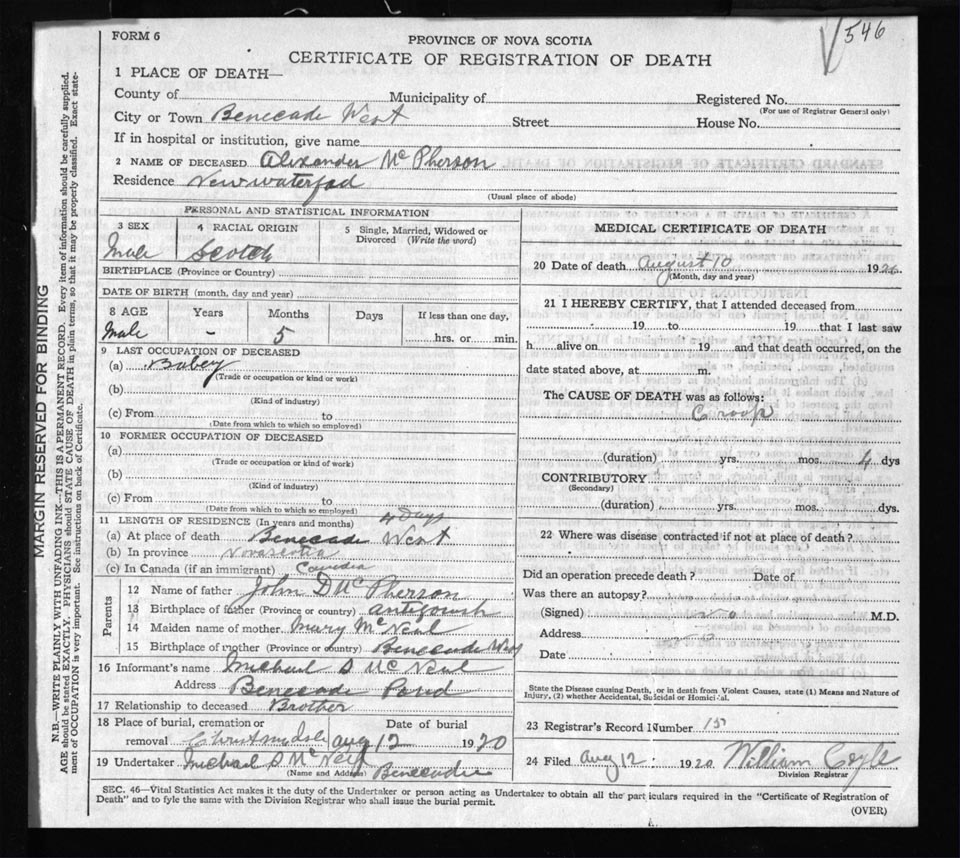 546
FORM 6
PROVINCE OF NOVA SCOTIA
CERTIFICATE OF REGISTRATION OF DEATH
1 PLACE OF DEATH—
County of Municipality of Registered No.
(For use of Registrar General only)
City or Town Benecade West Street House No.
If in hospital or institution, give name
2 NAME OF DECEASED Alexander Mc Pherson
Residence Newwaterford
(Usual place of abode)
PERSONAL AND STATISTICAL INFORMATION
3 SEX 4 RACIAL ORIGIN 5 Single, Married, Widowed or
Divorced (Write the word)
Male Scotch
BIRTHPLACE (Province or Country)
DATE OF BIRTH (month, day and year)
8 AGE Years Months Days If less than one day,
Male - 5 hrs. or min.
9 LAST OCCUPATION OF DECEASED
(a) Babey
(Trade or occupation or kind or work)
(b)
(Kind of industry)
(c) From to
(Date from which to which so employed)
10 FORMER OCCUPATION OF DECEASED
(a)
(Trade or occupation or kind of work)
(b)
(Kind of industry)
(c) From to
(Date from which to which so employed)
11 LENGTH OF RESIDENCE (In years and months) 4 Days
(a) At place of death Benecade West
(b) In province Novascotia
(c) In Canada (if an immigrant)
Parents
12 Name of father John D Mc Pherson
13 Birthplace of father (Province or country) antigonish
14 Maiden name of mother Mary McNeal
15 Birthplace of mother (Province or country) Benecade West
16 Informant's name Michael S McNeal
Address Benecade Pond
17 Relationship to deceased Brother
18 Place of burial, cremation or Date of burial
removal aug 12 1920
19 Undertaker Michael S McNeil
(Name and Address) Benecadie
MEDICAL CERTIFICATE OF DEATH
20 Date of death august 10 1920
(Month, day and year)
21 I HEREBY CERTIFY, that I attended deceased from
19 to 19 that I last saw
h alive on 19 and that death occurred, on the
date stated above, at m.
The CAUSE OF DEATH was as follows:
Croop
(duration) yrs. mos. 4 dys
CONTRIBUTORY
(Secondary)
(duration) yrs. mos. dys.
22 Where was disease contracted if not at place of death?
Did an operation precede death? Date of
Was there an autopsy?
(Signed) no M.D.
Address no
Date
State the Disease causing Death, or in death from Violent Causes, state (1) Means and Nature of
Injury, (2) whether Accidental, Suicidal or Homicidal.
23 Registrar's Record Number 15
24 Filed aug 12 1920 William Coyle
Division Registrar
SEC. 46—Vital Statistics Act makes it the duty of the Undertaker or person acting as Undertaker to obtain all the particulars required in the "Certificate of Registration of
Death" and to fyle the same with the Division Registrar who shall issue the burial permit.
(OVER)
MARGIN RESERVED FOR BINDING
N.B.—WRITE PLAINLY WITH UNFADING INK—THIS IS A PERMANENT RECORD. Every item of information should be carefully supplied.
AGE should be stated EXACTLY. PHYSICIANS should STATE CAUSE OF DEATH in plain terms, so that it may be properly classified. Exact state-
ment of OCCUPATION is very important. See instructions on back of Certificate.